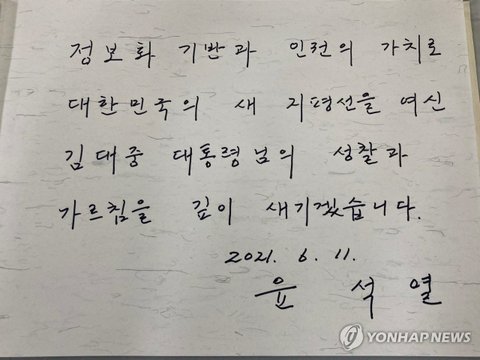 정보화 기반과 인권의 가치로
대한민국의 새 지평선을 여신
김대중 대통령님의 성찰과
가르침을 깊이 새기겠습니다.
2021. 6. 11.
윤 석 열
YONHAP NEWS